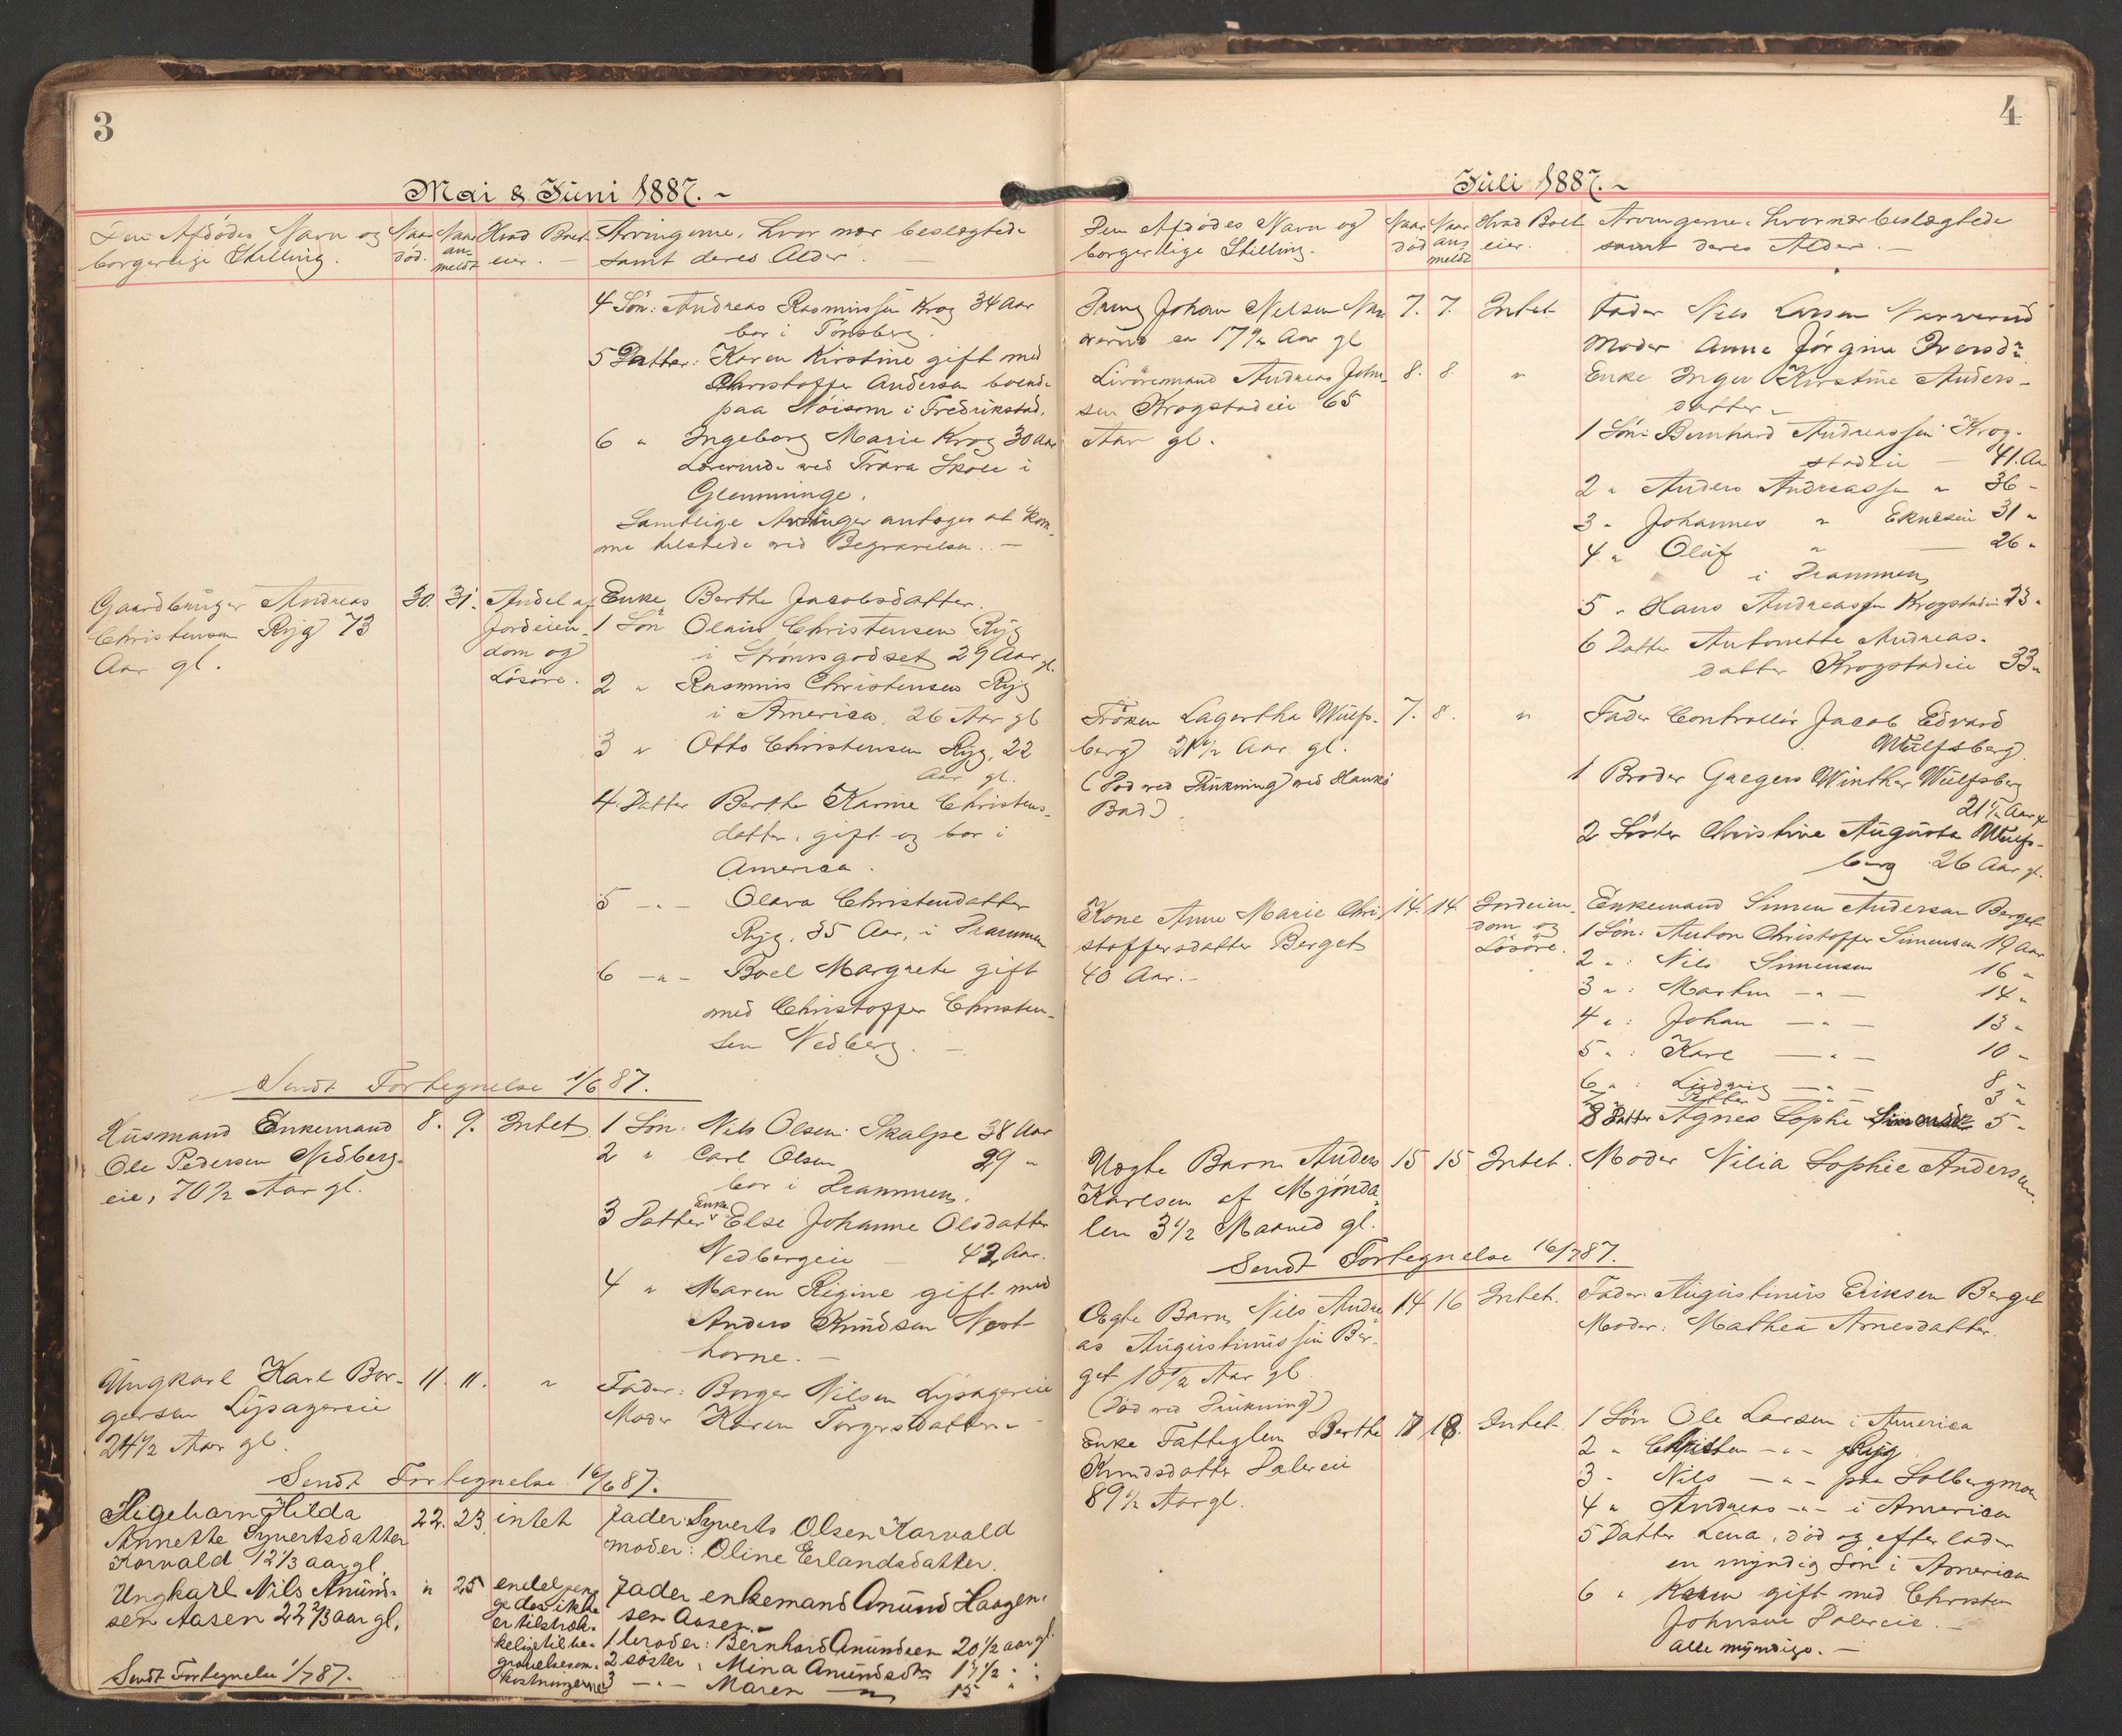 3
Mai & Juni 1887.
Den Afdødes Navn og
borgerlige Stilling.
Naar
død.
Naar
an-
meldt
Hvad Boet
eier.
Arvingerne, hvor nær beslægtede
samt deres Alder.
4 Søn: Andreas Rasmussen Krog 34 Aar
bor i Tønsberg.
5 Datter: Karen Kirstine gift med
Christoffer Andersen boende
paa Nøisom i Fredrikstad.
6 " Ingeborg Marie Krog 30 Aar
Lærerinde ved Trara Skole i
Glemminge.
Samtlige Arvinger antages at kom-
me tilstede ved Begravelsen. —
Gaardbruger Andreas
Christensen Ryg 73
Aar gl.
30. 31.
Andel af
Jordeien-
dom og
Løsøre.
Enke Berthe Jacobsdatter.
1 Søn Olaus Christensen Ryg
i Strømsgodset 29 Aar gl.
2 " Rasmus Christensen Ryg
i America, 26 Aar gl
3 " Otto Christensen Ryg, 22
Aar gl.
4 Datter Berthe Karine Christens-
datter, gift og bor i
America.
5 — " — Olava Christendatter
Ryg, 35 Aar, i Drammen
6 — " — Boel Margrete gift
med Christoffer Christen-
sen Nedberg. —
Sendt Fortegnelse 1/6 87.
Husmand Enkemand
Ole Pedersen Nedberg-
eie, 70 1/2 Aar gl.
8. 9. Intet
1 Søn. Nils Olsen Skalpe 38 Aar
2 " Carl Olsen 29 "
bor i Drammen.
3 Datter Enke Else Johanne Olsdatter
Nedbergeie — 42 Aar.
4 " Maren Regine gift med
Anders Knudsen Vest-
horne. —
Ungkarl Karl Bor-
gersen Lysagereie
24 1/2 Aar gl.
11. 11. "
Fader: Borger Nilsen Lysagereie
Moder Karen Torgersdatter
Sendt Fortegnelse 16/6 87.
Pigebarn Hilda
Annette Syvertsdatter
Korvald 12 1/3 aar gl.
22. 23. intet
Fader: Syverts Olsen Korvald
moder: Oline Erlandsdatter.
Ungkarl Nils Amund-
sen Aasen 22 2/3 aar gl.
" 25
endel pen-
ge der ikke
er tilstræk-
kelige til be-
gravelsesom-
kostningerne
Fader enkemand Amund Haagen-
sen Aasen. —
1 broder: Bernhard Amundsen 20 1/2 aar gl.
2 søster, Mina Amundsdtr 17 1/2 " "
3 — " — Maren — " — 15 " "
Sendt Fortegnelse 1/7 87.
4
Juli 1887.
Den Afdødes Navn og
borgerllige Stilling.
Naar
død
Naar
an-
meldt
Hvad Boet
eier.
Arvingerne, hvor nær beslægtede
samt deres Alder. —
Dreng Johan Nilsen Nar
verud ca 17 1/2 Aar gl
7. 7. Intet
Fader Nils Larsen Narverud
Moder Anne Jørgine Iversdtr
Livøremand Andreas John-
sen Krogstadeie 65
Aar gl.
8. 8. "
Enke Inger Kirstine Anders-
datter
1 Søn: Bernhard Andreassen Krog-
stadeie — 41 Aar
2 " Anders Andreassen " 36 "
3 " Johannes " Eknæseie 31 "
4 " Oluf " — 26 "
i Drammen
5 " Hans Andreassen Krogstadeie 23 "
6 Datter Antonette Andreas-
datter Krogstadeie 33 "
Frøken Lagertha Wulfs-
berg 21 1/2 Aar gl.
(Død ved Drukning ved Hankø
Bad).
7. 8. "
Fader Controllør Jacob Edvard
Wulfsberg
1 Broder Gregers Winther Wulfsberg
21 1/2 Aar gl
2 Søster Christine Augusta Wulfs-
berg 26 Aar gl.
Kone Anne Marie Chri-
stoffersdatter Berget
40 Aar. —
14. 14.
Jordeien-
dom og
Løsøre.
Enkemand Simen Andersen Berget
1 Søn: Anton Christoffer Simensen 19 Aar
2 " : Nils Simensen 16 "
3 " : Martin — " — 14 "
4 " : Johan — " — 13 "
5 " : Karl — " — 10 "
6 " : Ludvig — " — 8 "
7 " — " — 3 "
8 Datter Agnes Sophie 5 "
Uægte Barn Anders
Karlsen af Mjønda-
len 3 1/2 Maaned gl.
15 15 Intet.
Moder Nilia Sophie Andersen.
Sendt Fortegnelse 16/7 87.
Ægte Barn Nils Andre-
as Augustinussen Ber-
get 10 1/2 Aar gl
(Død ved Drukning)
14 16 Intet.
Fader: Augustinus Eriksen Berget
Moder: Mathea Arnesdatter.
Enke Fattiglem Berthe
Knudsdatter Dalereie
89 1/2 Aar gl.
17 18. Intet.
1 Søn Ole Larsen i America
2 " Christen — " — Ryg
3 " Nils — " — paa Solbergmoen
4 " Andreas — " — i America
5 Datter Lena, død og efterlader
en myndig Søn i America
6 " Karen gift med Christen
Johnsen Dalereie. —
Alle myndige. —